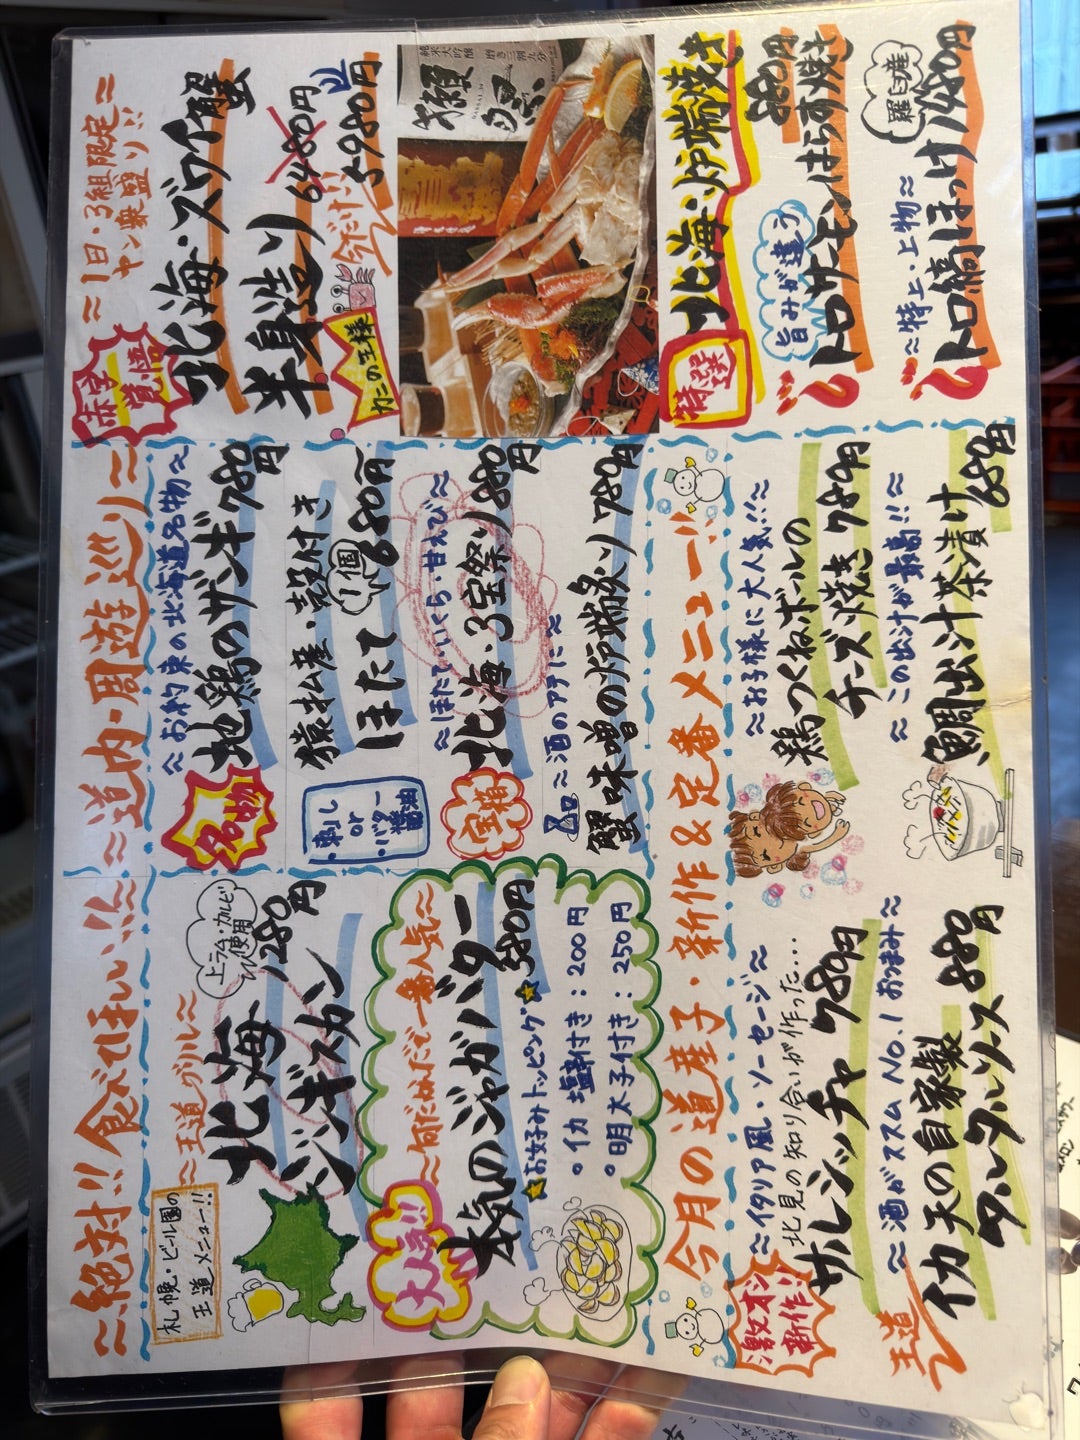 〜絶対!!食べてほしい!!〜道内・周遊巡り〜
札幌・ビール園の
王道メニュー!!
〜王道グルル〜
上ラム・カルビ
使用
北海
ジンギスカン
1280円
大人気!!
〜何だかんだで一番人気〜
本気のジャガバター
580円
★お好みトッピング★
・イカ塩辛付き:200円
・明太子付き:250円
名物
〜お約束の北海道名物〜
地鶏のザンギ 780円
猿払産・殻付き
ほたて 1個 680円
・刺し
or
・バター
醤油
宝箱
〜ほたて・いくら・甘えび〜
北海・3宝祭り 1880円
〜酒のアテに〜
蟹味噌の炉端炙り 780円
〜1日・3組限定〜
ヤン衆盛り!!
赤字
覚悟
北海・ズワイ蟹
半身造り
6480円
今だけ!!
5980円
カニの王様
獺祭
純米大吟醸
磨き三割九分
特選
北海・炉端焼き
旨みが違う
880円
トロサーモンはらす焼き
羅臼産
〜特上・上物〜
トロ縞ほっけ 1480円
今月の道産子・新作&定番メニュー!!
激オシ
新作!!
〜イタリア風・ソーセージ〜
北見の知り合いが作った…
サルシッチャ 780円
王道
〜酒がススム No.1 おつまみ〜
イカ天の自家製
タルタルソース 880円
〜お子様に大人気!!〜
鶏つくねボールの
チーズ焼き 780円
〜この出汁が最高!!〜
鯛出汁茶漬け 680円